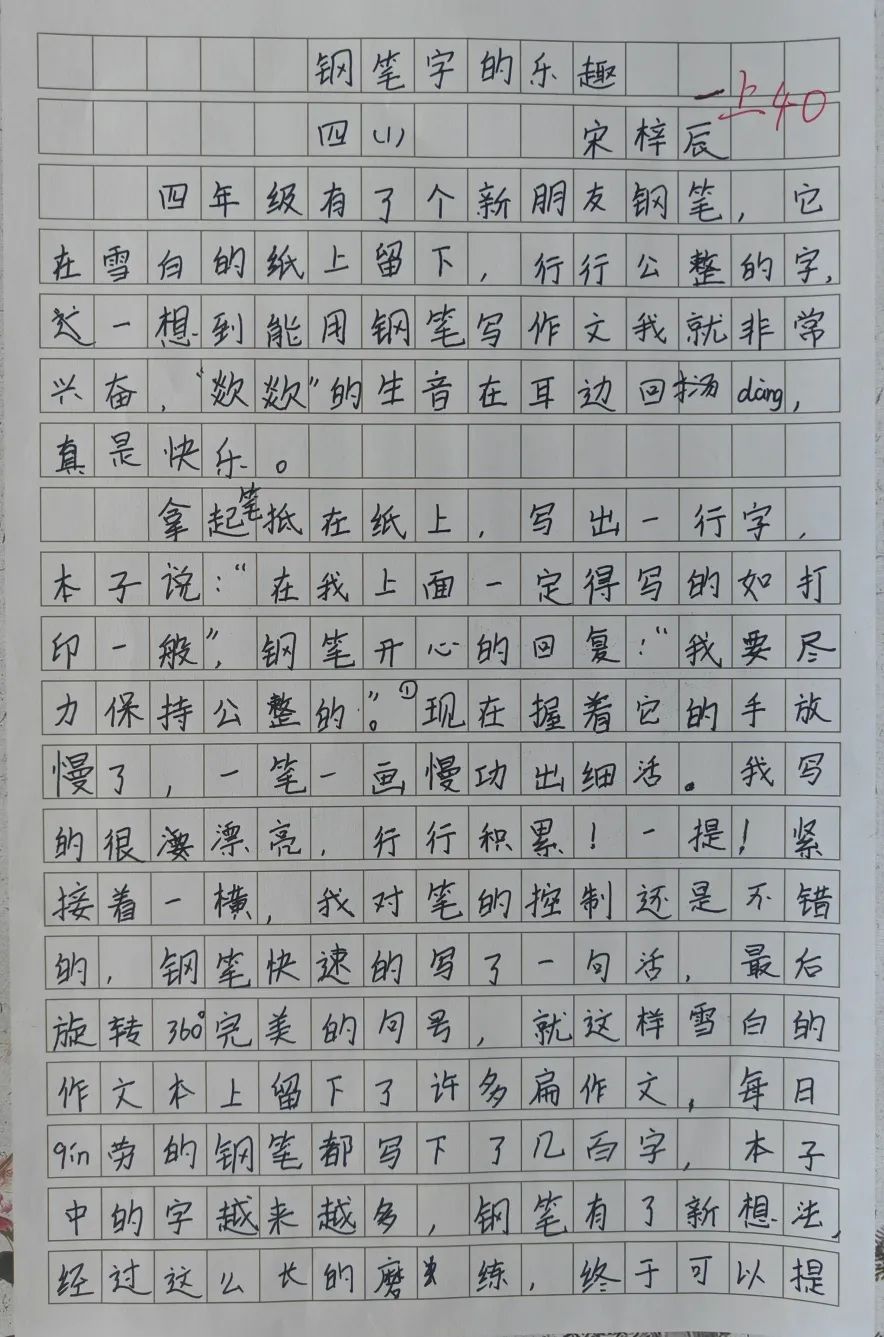 钢笔字的乐趣
一上40
四(1) 宋梓辰
四年级有了个新朋友钢笔，它
在雪白的纸上留下，行行公整的字，
一想到能用钢笔写作文我就非常
兴奋，“欻欻”的生音在耳边回汤dàng，
真是快乐。
拿起笔抵在纸上，写出一行字，
本子说：“在我上面一定得写的如打
印一般”，钢笔开心的回复：“我要尽
力保持公整的”。①现在握着它的手放
慢了，一笔一画慢功出细活。我写
的很漂亮，行行积累！一提！紧
接着一横，我对笔的控制还是不错
的，钢笔快速的写了一句活，最后
旋转360°完美的句号，就这样雪白的
作文本上留下了许多扁作文，每日
qin劳的钢笔都写下了几百字，本子
中的字越来越多，钢笔有了新想法，
经过这么长的磨练，终于可以提